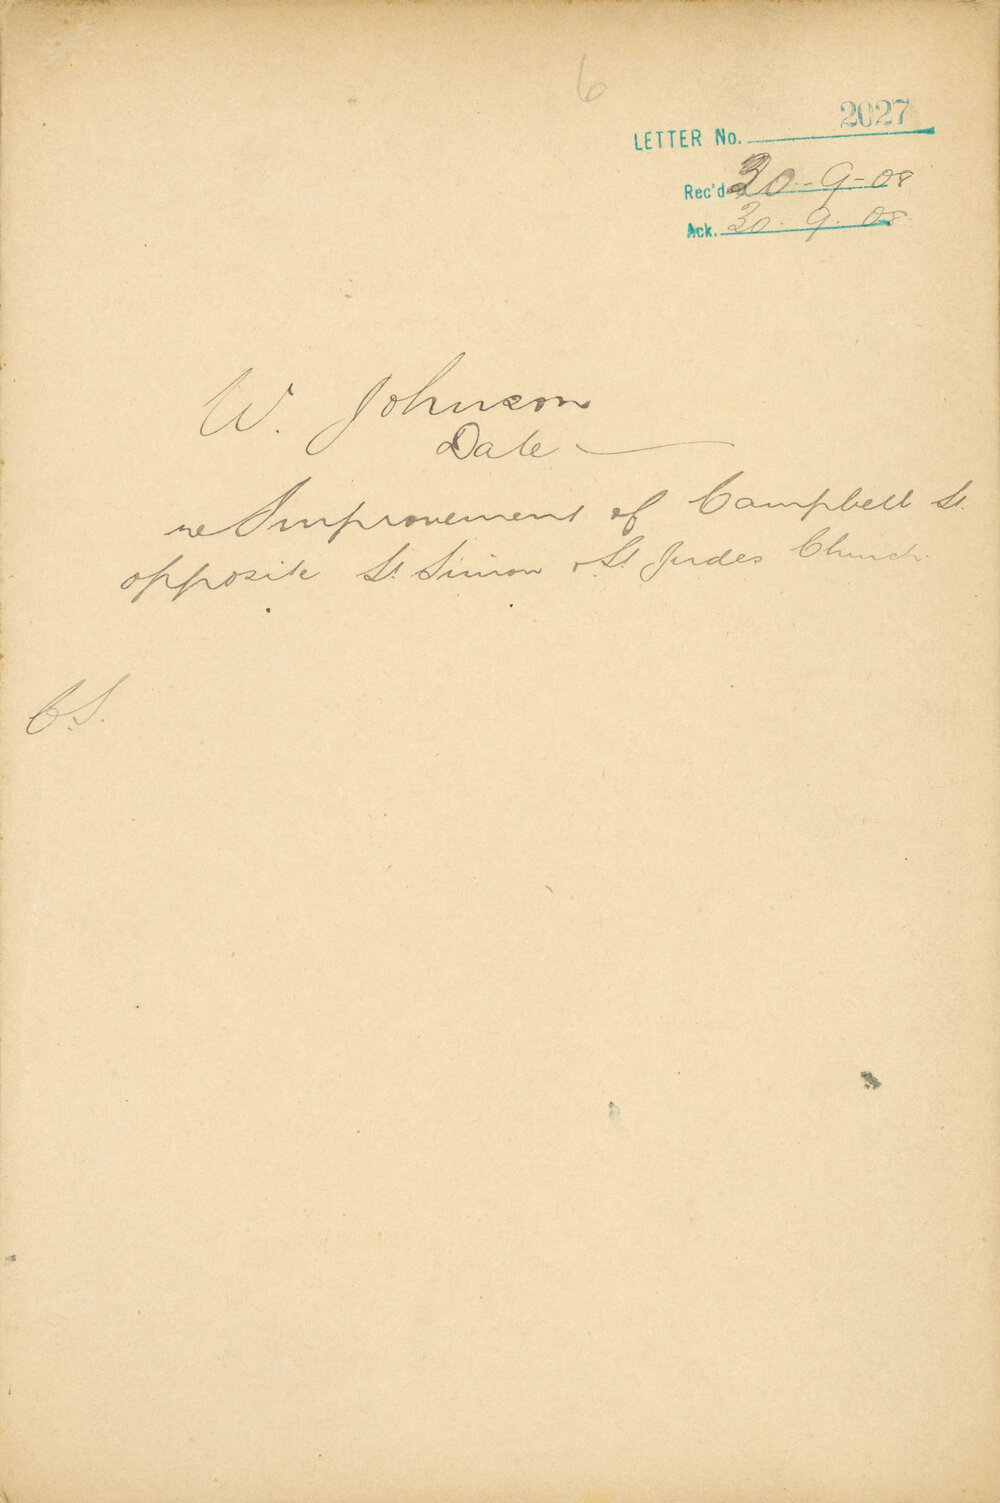 6
LETTER No. 2027
Rec'd 30-9-08
Ack. 30.9.08.
W. Johnson
Date
re Improvement of Campbell St.
opposite St Simon & St Judes Church.
C.S.